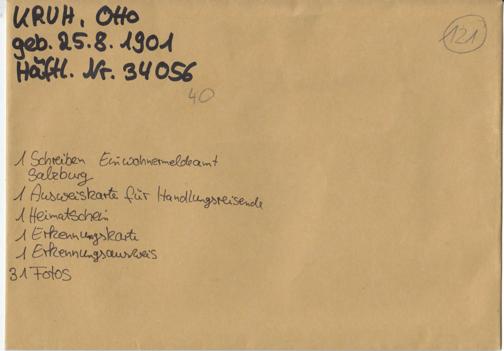 KRUH, Otto
geb. 25.8.1901
Häftl. Nr. 34056
121
40
1 Schreiben Einwohnermeldeamt
Salzburg
1 Ausweiskarte für Handlungsreisende
1 Heimatschein
1 Erkennungskarte
1 Erkennungsausweis
31 Fotos